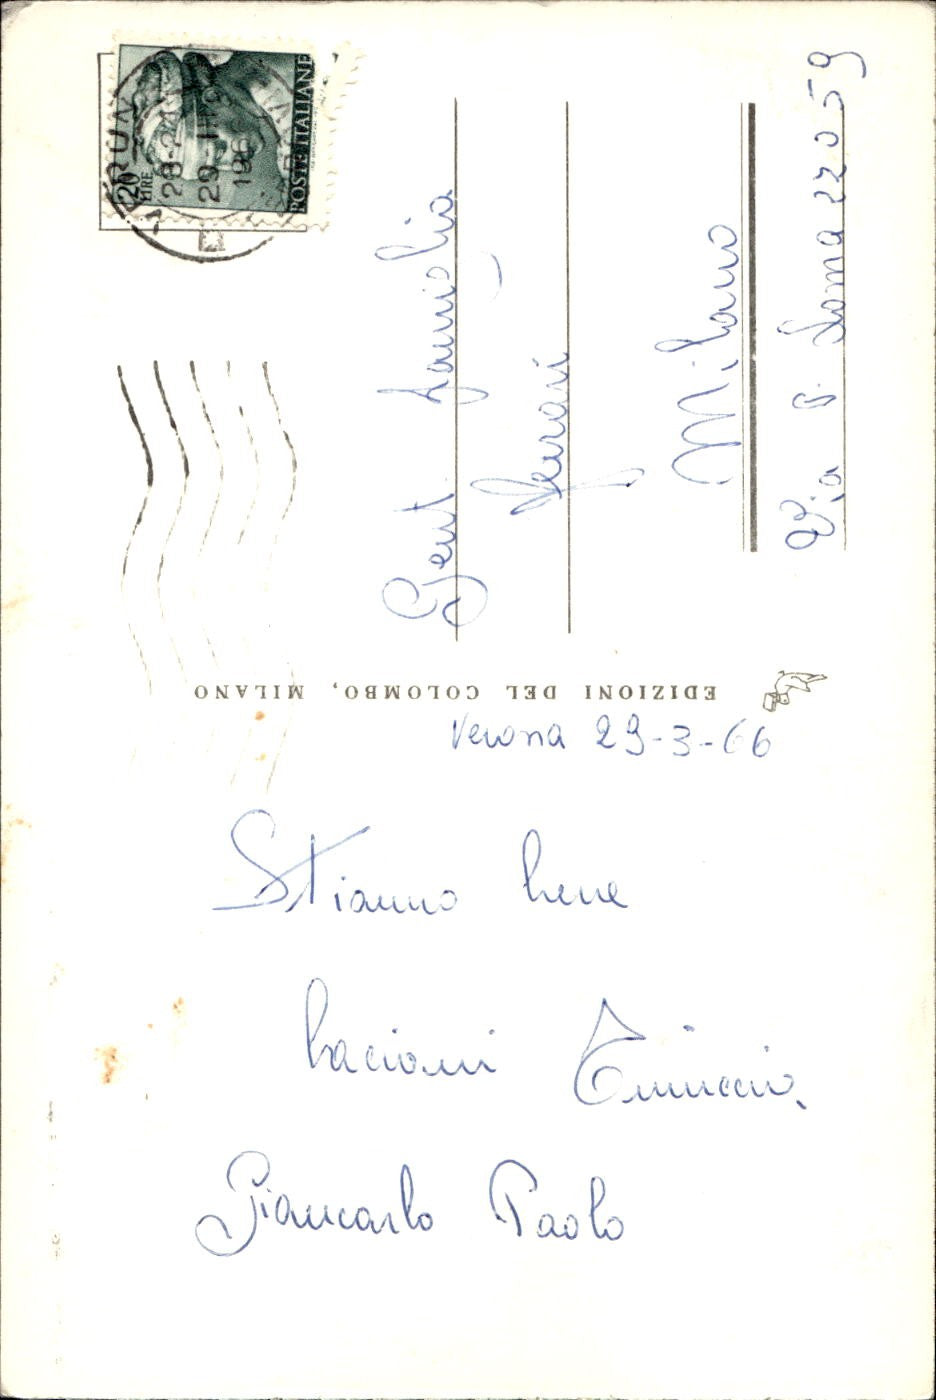 20
LIRE
POSTE ITALIANE
VERONA
29-III
196
Gent. Famiglia
Ferrari
Milano
Via P. Lomazzo 59
EDIZIONI DEL COLOMBO, MILANO
Verona 29-3-66
Stiamo bene
bacioni
Giancarlo Paolo